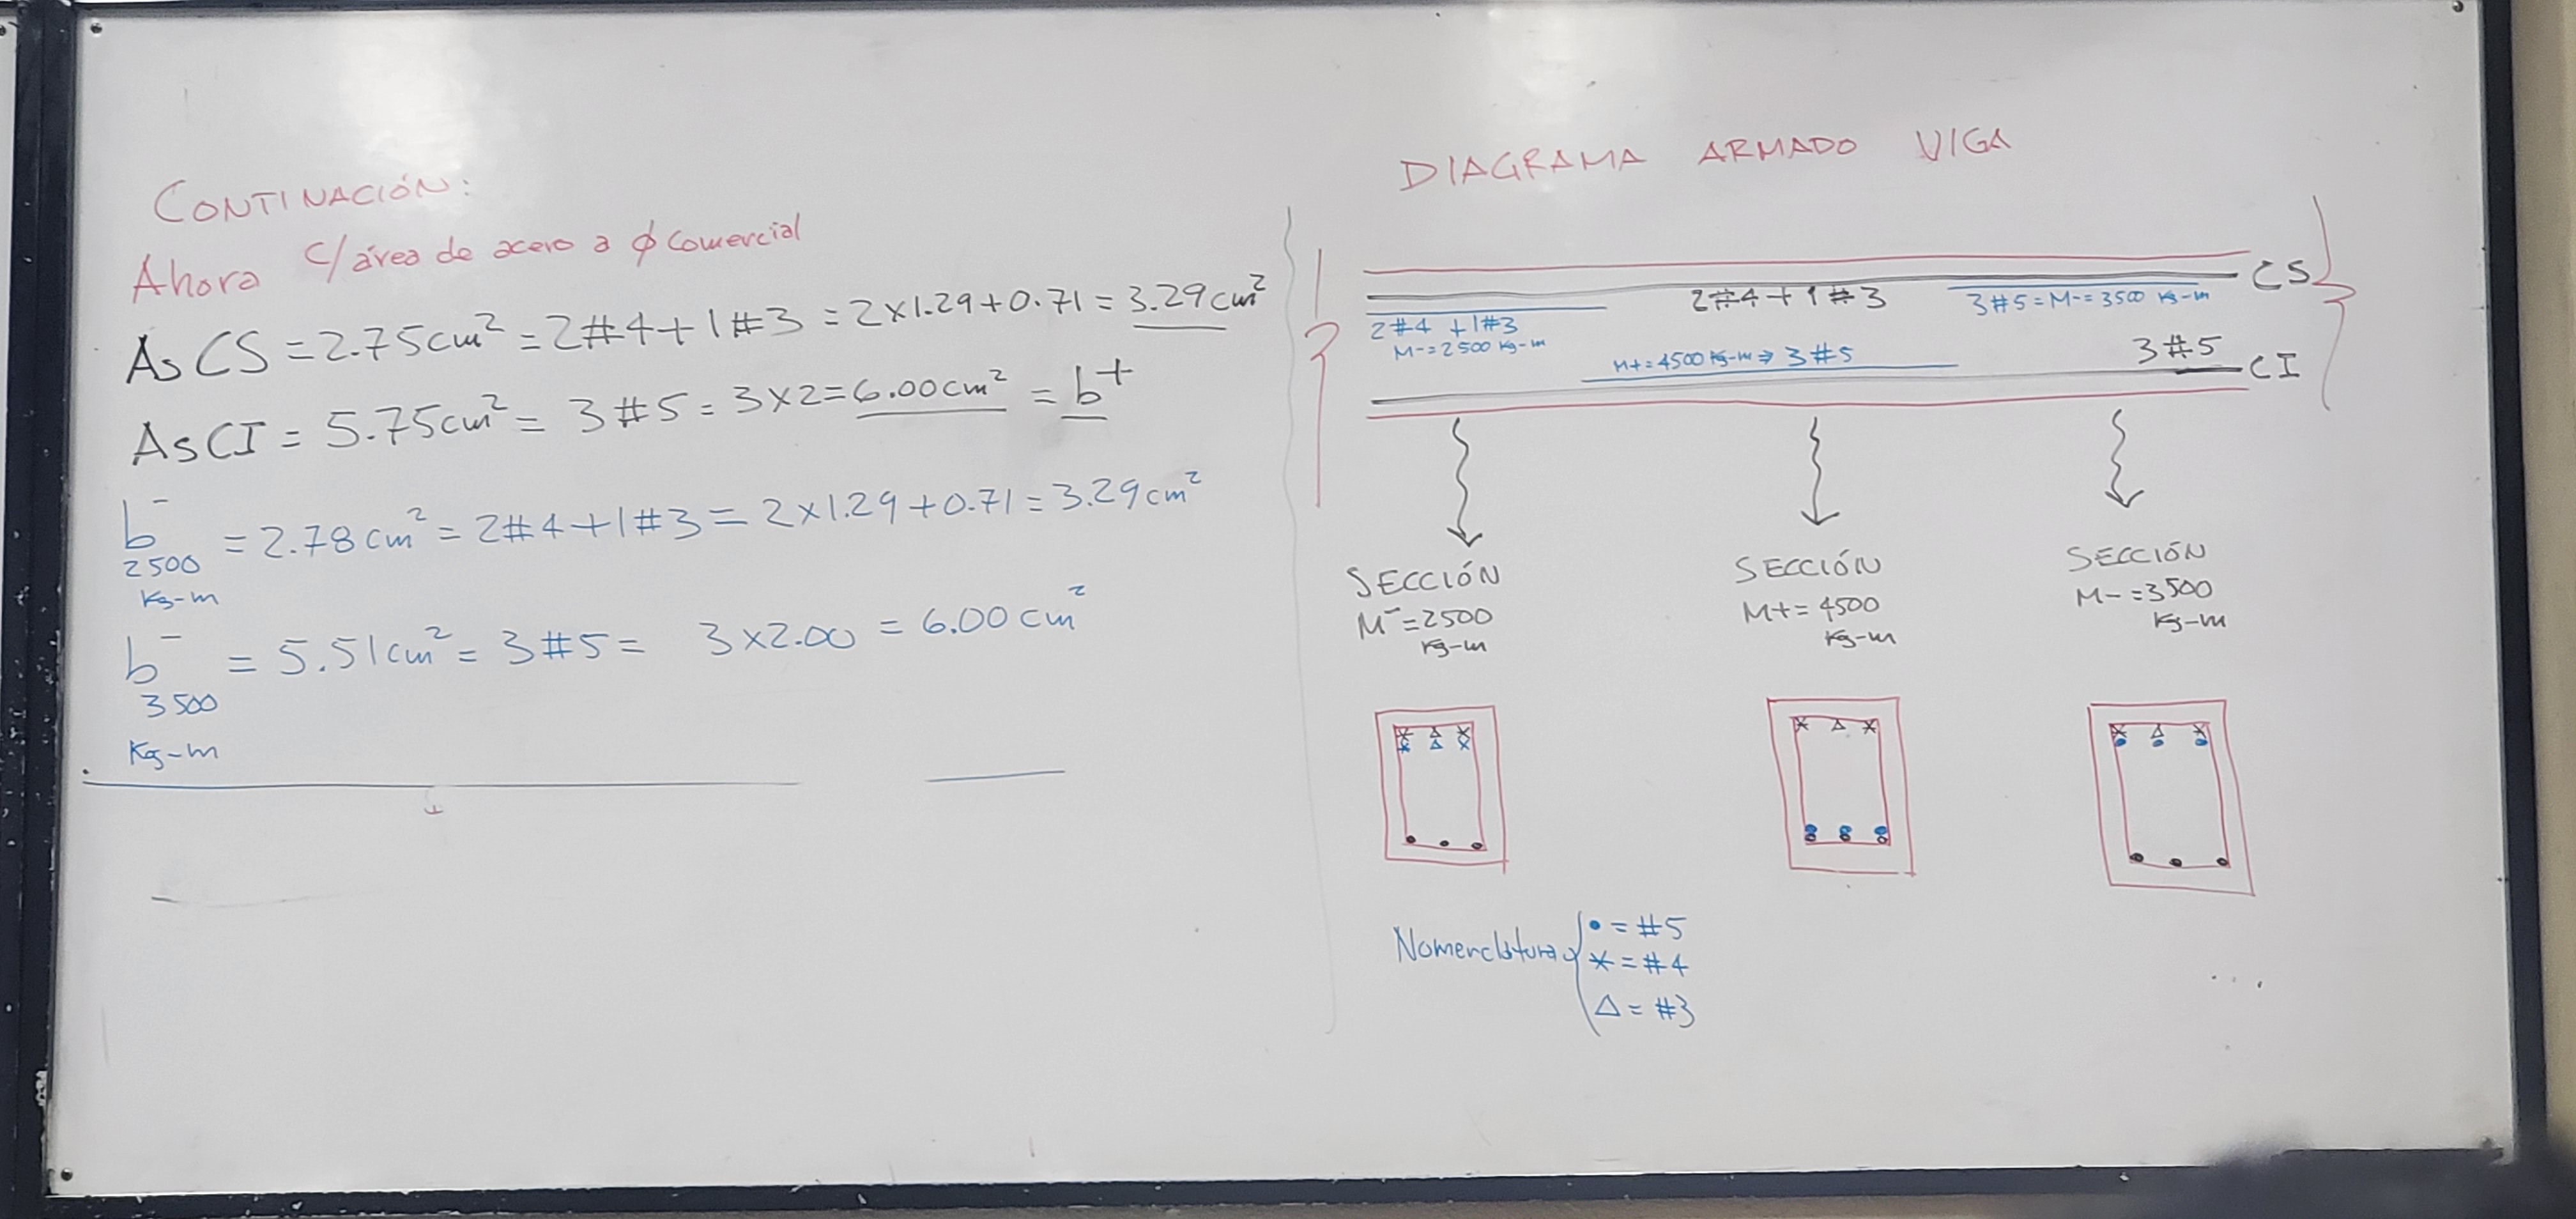 CONTINACIÓN:
Ahora c/área de acero a ϕ Comercial
As CS = 2.75 cm² = 2#4 + 1#3 = 2x1.29 + 0.71 = 3.29 cm²
As CI = 5.75 cm² = 3#5 = 3x2 = 6.00 cm² = b⁺
b⁻ = 2.78 cm² = 2#4 + 1#3 = 2x1.29 + 0.71 = 3.29 cm²
2500
Kg-m
b⁻ = 5.51 cm² = 3#5 = 3x2.00 = 6.00 cm²
3500
Kg-m
DIAGRAMA ARMADO VIGA
CS
2#4 + 1#3
2#4 + 1#3
M- = 2500 Kg-m
3#5 = M- = 3500 Kg-m
M+ = 4500 Kg-m ⇒ 3#5
3#5
CI
SECCIÓN
M⁻ = 2500
Kg-m
SECCIÓN
M+ = 4500
Kg-m
SECCIÓN
M- = 3500
Kg-m
Nomenclatura
• = #5
* = #4
Δ = #3